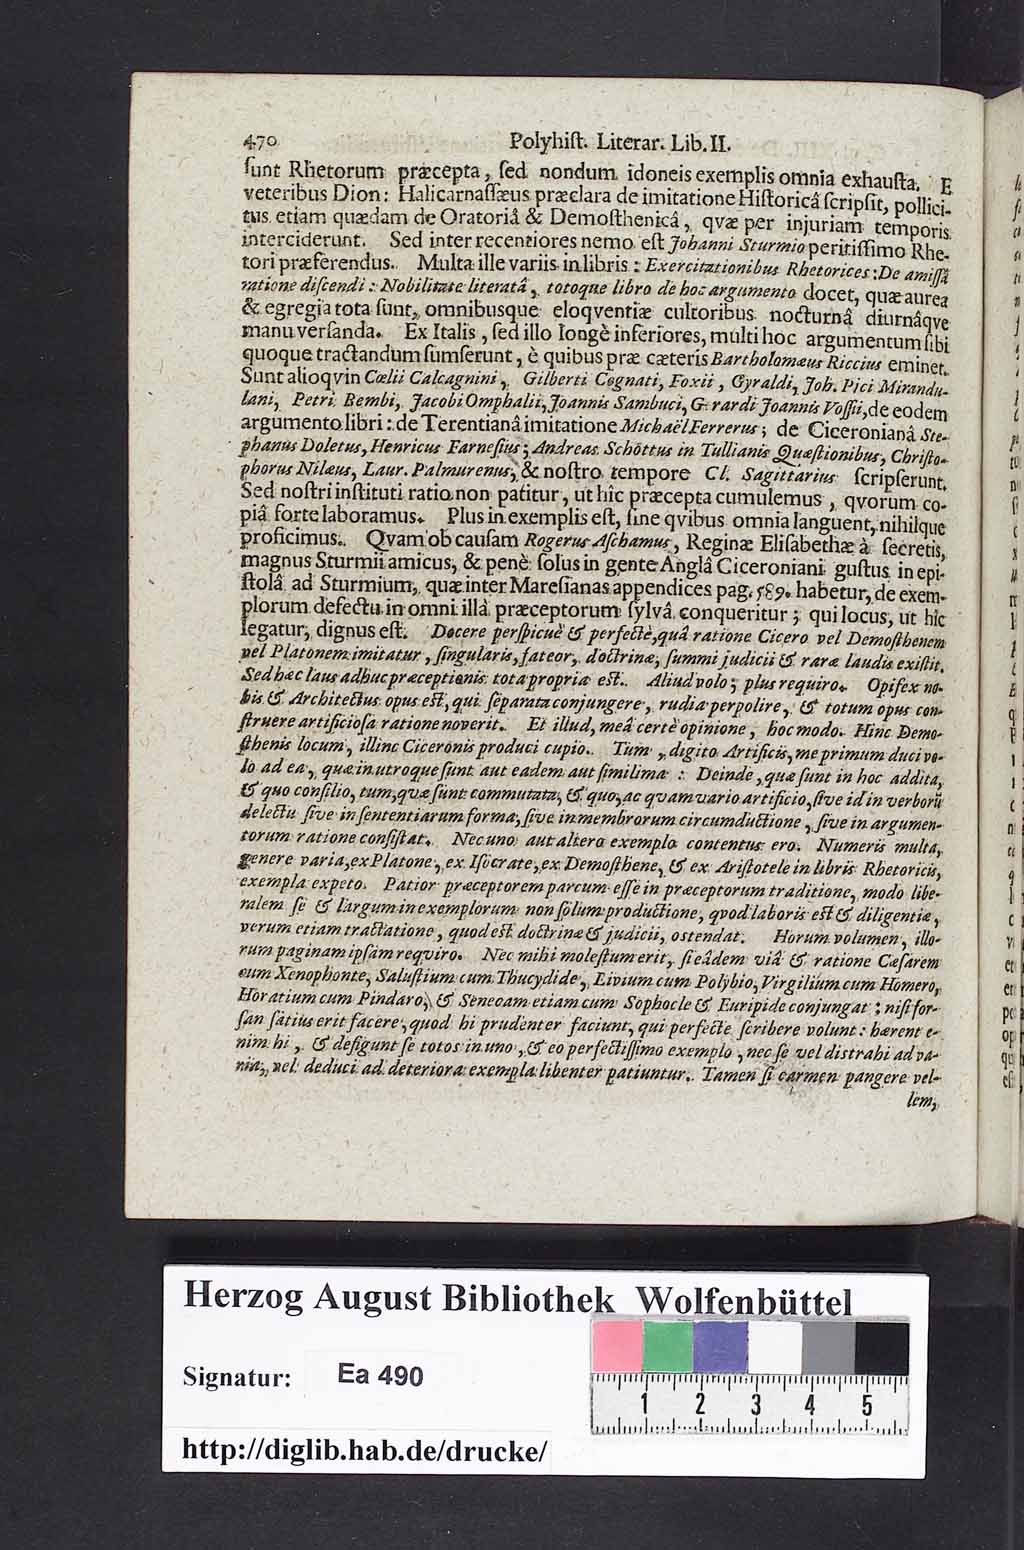 470 Polyhiſt. Literar. Lib. II.
ſunt Rhetorum præcepta, ſed nondum idoneis exemplis omnia exhauſta. E
veteribus Dion: Halicarnaſſæus præclara de imitatione Hiſtoricâ ſcripſit, pollici-
tus etiam quædam de Oratoriâ & Demoſthenicâ, qvæ per injuriam temporis
interciderunt. Sed inter recentiores nemo eſt Johanni Sturmio peritiſſimo Rhe-
tori præferendus. Multa ille variis in libris: Exercitationibus Rhetorices: De amiſſâ
ratione diſcendi: Nobilitate literatâ, totoque libro de hoc argumento docet, quæ aurea
& egregia tota ſunt, omnibusque eloqventiæ cultoribus nocturnâ diurnâqve
manu verſanda. Ex Italis, ſed illo longè inferiores, multi hoc argumentum ſibi
quoque tractandum ſumſerunt, è quibus præ cæteris Bartholomæus Riccius eminet.
Sunt alioqvin Cœlii Calcagnini, Gilberti Cognati, Foxii, Gyraldi, Joh. Pici Mirandu-
lani, Petri Bembi, Jacobi Omphalii, Joannis Sambuci, Gerardi Joannis Voſſii, de eodem
argumento libri: de Terentianâ imitatione Michaël Ferrerus; de Ciceronianâ Ste-
phanus Doletus, Henricus Farneſius; Andreas Schöttus in Tullianis Quæſtionibus, Chriſto-
phorus Nilæus, Laur. Palmurenus, & noſtro tempore Cl. Sagittarius ſcripſerunt.
Sed noſtri inſtituti ratio non patitur, ut hîc præcepta cumulemus, qvorum co-
piâ forte laboramus. Plus in exemplis eſt, ſine qvibus omnia languent, nihilque
proficimus. Qvam ob cauſam Rogerus Aſchamus, Reginæ Eliſabethæ à ſecretis,
magnus Sturmii amicus, & penè ſolus in gente Anglâ Ciceroniani guſtus in epi-
ſtolâ ad Sturmium, quæ inter Mareſianas appendices pag. 589. habetur, de exem-
plorum defectu in omni illâ præceptorum ſylvâ conqueritur; qui locus, ut hîc
legatur, dignus eſt. Docere perſpicuè & perfectè, quâ ratione Cicero vel Demoſthenem
vel Platonem imitatur, ſingularis, fateor, doctrinæ, ſummi judicii & raræ laudis exiſtit.
Sed hæc laus adhuc præceptionis tota propria eſt. Aliud volo; plus requiro. Opifex no-
bis & Architectus opus eſt, qui ſeparata conjungere, rudia perpolire, & totum opus con-
ſtruere artificioſa ratione noverit. Et illud, meâ certè opinione, hoc modo. Hinc Demo-
ſthenis locum, illinc Ciceronis produci cupio. Tum, digito Artificis, me primum duci vo-
lo ad ea, quæ in utroque ſunt aut eadem aut ſimilima: Deinde, quæ ſunt in hoc addita,
& quo conſilio, tum, qvæ ſunt commutata, & quo, ac quam vario artificio, ſive id in verborū
delectu ſive in ſententiarum forma, ſive in membrorum circumductione, ſive in argumen-
torum ratione conſiſtat. Nec uno aut altero exemplo contentus ero. Numeris multa,
genere varia, ex Platone, ex Iſocrate, ex Demoſthene, & ex Ariſtotele in libris Rhetoricis,
exempla expeto. Patior præceptorem parcum eſſe in præceptorum traditione, modo libe-
ralem ſe & largum in exemplorum non ſolum productione, qvod laboris eſt & diligentiæ,
verum etiam tractatione, quod eſt doctrinæ & judicii, oſtendat. Horum volumen, illo-
rum paginam ipſam reqviro. Nec mihi moleſtum erit, ſi eâdem viâ & ratione Cæſarem
cum Xenophonte, Saluſtium cum Thucydide, Livium cum Polybio, Virgilium cum Homero,
Horatium cum Pindaro, & Senecam etiam cum Sophocle & Euripide conjungat; niſi for-
ſan ſatius erit facere, quod hi prudenter faciunt, qui perfecte ſcribere volunt: hærent e-
nim hi, & defigunt ſe totos in uno, & eo perfectiſſimo exemplo, nec ſe vel diſtrahi ad va-
nia, vel deduci ad deteriora exempla libenter patiuntur. Tamen ſi carmen pangere vel-
lem,
Herzog August Bibliothek Wolfenbüttel
Signatur: Ea 490
1 2 3 4 5
http://diglib.hab.de/drucke/